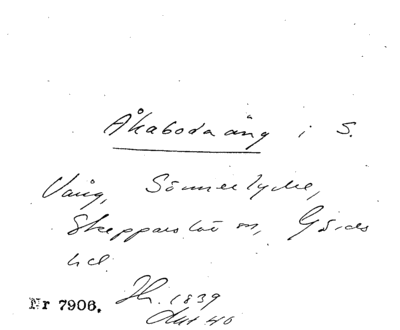 Åkaboda äng i S.
Vång, Sönnerlycke,
Skepparslöv sn, Gärds
hd.
Nr 7906. Jb. 1839
Akt 40